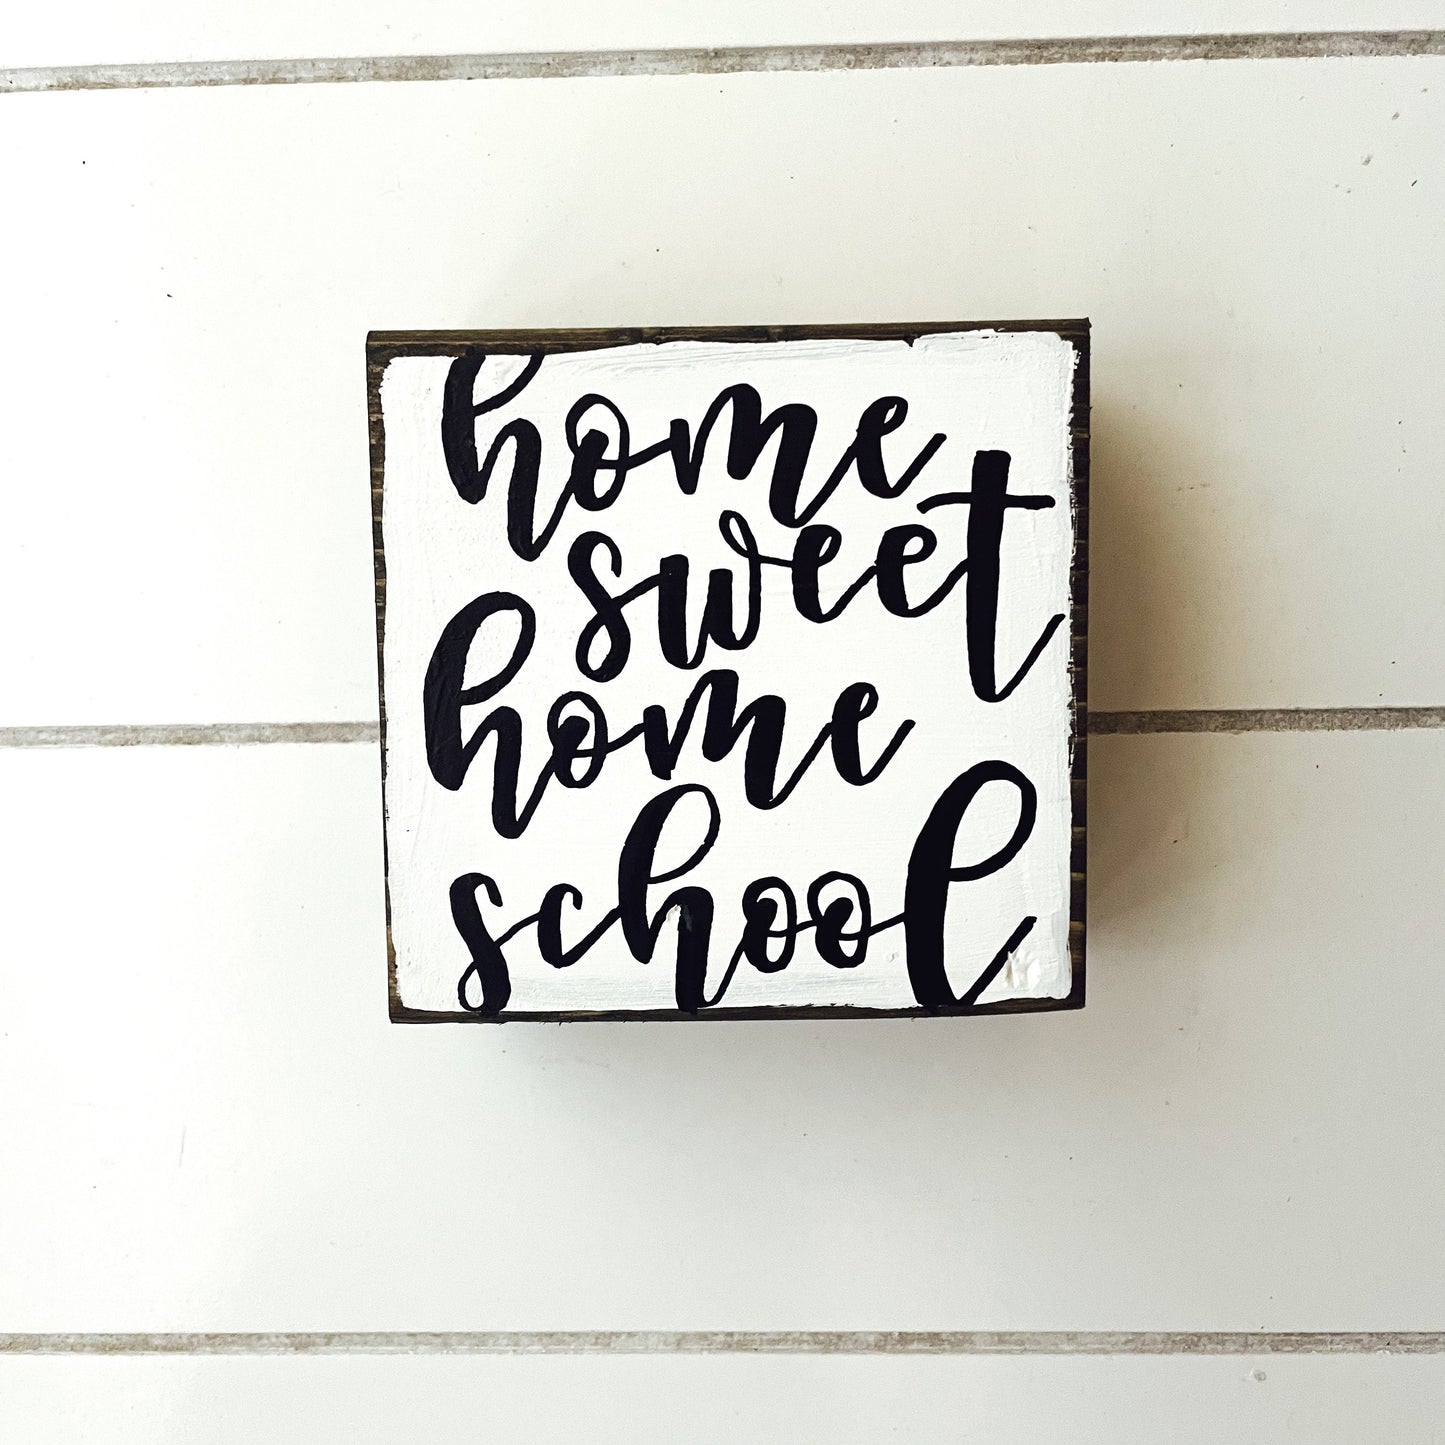 home
sweet
home
school